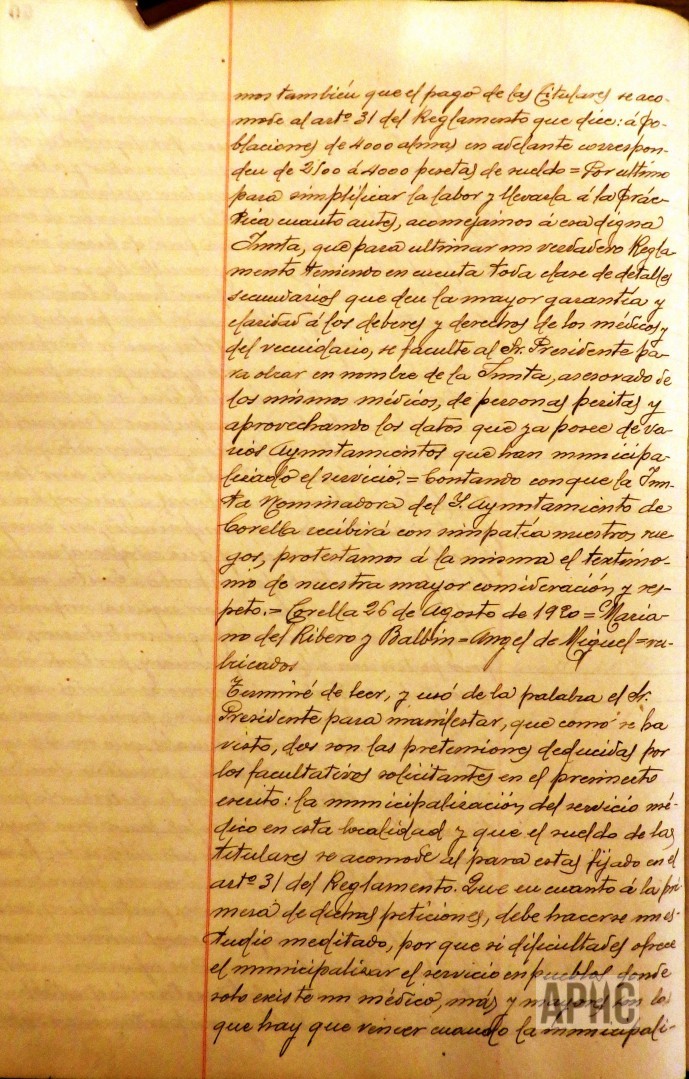 mos también que el pago de las titulares se aco-
mode al artº 31 del Reglamento que dice: á po-
blaciones de 4000 almas en adelante correspon-
den de 2500 á 4000 pesetas de sueldo = Por ultimo
para simplificar la labor y llevarla á la prác-
tica cuanto antes, aconsejamos á esa digna
Junta, que para ultimar un verdadero Regla-
mento teniendo en cuenta toda clase de detalles
secundarios que den la mayor garantía y
claridad á los deberes y derechos de los médicos y
del vecindario, se faculte al Sr. Presidente pa-
ra obrar en nombre de la Junta, asesorado de
los mismos médicos, de personas peritas y
aprovechando los datos que ya posee de va-
rios Ayuntamientos que han municipa-
lizado el servicio. = Contando con que la Jun-
ta Nominadora del Y. Ayuntamiento de
Corella recibirá con simpatía nuestros rue-
gos, protestamos á la misma el testimo-
nio de nuestra mayor consideración y res-
peto. = Corella 26 de Agosto de 1920 = Maria-
no del Ribero y Balbin = Angel de Miguel = ru-
bricados
Terminé de leer, y usó de la palabra el Sr.
Presidente para manifestar, que como se ha
visto, dos son las pretensiones deducidas por
los facultativos solicitantes en el preinserto
escrito: la municipalización del servicio mé-
dico en esta localidad y que el sueldo de las
titulares se acomode al para estas fijado en el
artº 31 del Reglamento. Que en cuanto á la pri
mera de dichas peticiones, debe hacerse un es-
tudio meditado, por que si dificultades ofrece
el municipalizar el servicio en pueblos donde
solo existe un médico, más y mayores son las
que hay que vencer cuando la municipali-
APHC